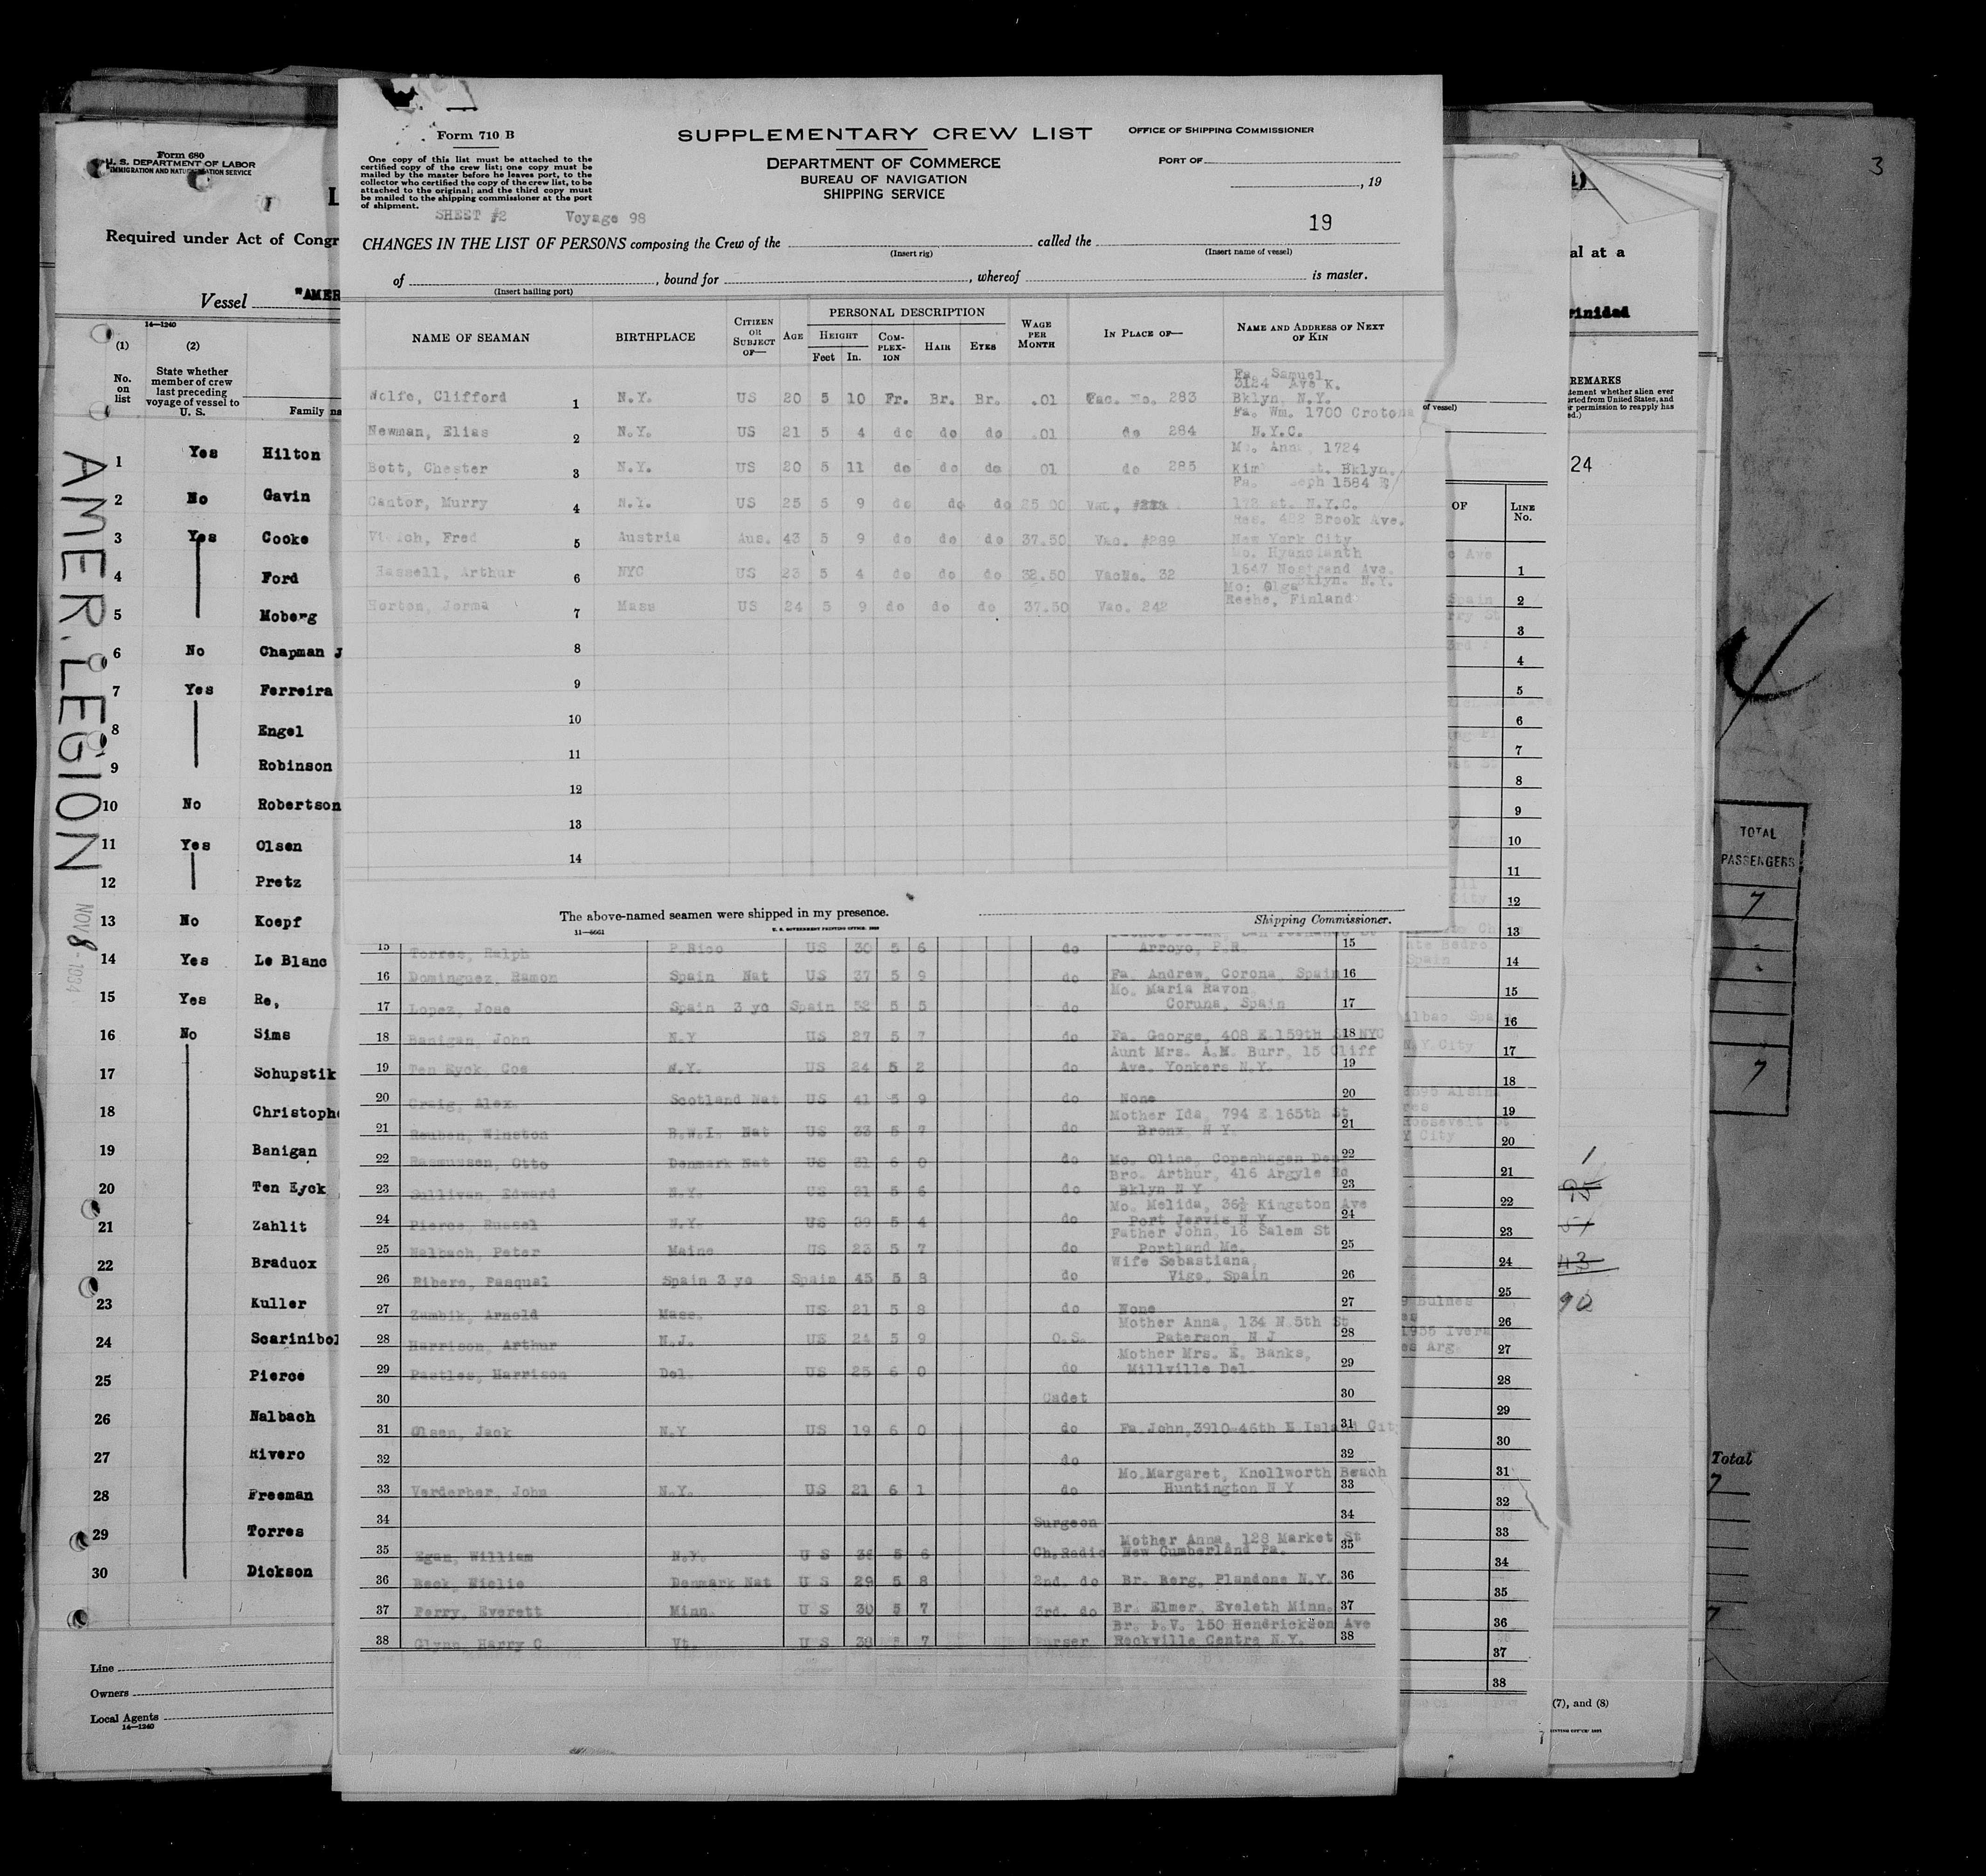 Form 710 B
SUPPLEMENTARY CREW LIST
OFFICE OF SHIPPING COMMISSIONER
One copy of this list must be attached to the
certified copy of the crew list; one copy must be
mailed by the master before he leaves port, to the
collector who certified the copy of the crew list, to be
attached to the original; and the third copy must
be mailed to the shipping commissioner at the port
of shipment.
DEPARTMENT OF COMMERCE
BUREAU OF NAVIGATION
SHIPPING SERVICE
PORT OF
, 19
SHEET #2 Voyage 98
19
CHANGES IN THE LIST OF PERSONS composing the Crew of the called the
(Insert rig) (Insert name of vessel)
of , bound for , whereof is master.
(Insert hailing port)
NAME OF SEAMAN BIRTHPLACE CITIZEN OR SUBJECT OF— AGE PERSONAL DESCRIPTION WAGE PER MONTH IN PLACE OF— NAME AND ADDRESS OF NEXT OF KIN
HEIGHT COMPLEXION HAIR EYES
Feet In.
Fa. Samuel
3124 Ave K.
Wolfe, Clifford 1 N.Y. US 20 5 10 Fr. Br. Br. .01 Vac. No. 283 Bklyn. N.Y.
Fa. Wm. 1700 Crotona
Newman, Elias 2 N.Y. US 21 5 4 do do do .01 do 284 N.Y.C.
Mo. Ann, 1724
Bott, Chester 3 N.Y. US 20 5 11 do do do 01 do 285 Kim t. Bklyn.
Fa. eph 1584 E/
Cantor, Murry 4 N.Y. US 25 5 9 do do do 25.00 Vac. 172 st. N.Y.C.
Res. 482 Brook Ave.
Fred 5 Austria Aus. 43 5 9 do do do 37.50 Vac. #289 New York City
Mo. Hyancianth
Hassell, Arthur 6 NYC US 23 5 4 do do do 32.50 VacNo. 32 1647 Nostrand Ave.
Bklyn. N.Y.
Mo: Olga
Horton, Jorma 7 Mass US 24 5 9 do do do 37.50 Vac. 242 Reehe, Finland
8
9
10
11
12
13
14
The above-named seamen were shipped in my presence.
Shipping Commissioner.
11—5661 U. S. GOVERNMENT PRINTING OFFICE
15 Torres, Ralph P.Rico US 30 5 6 do Arroyo, P.R. 15
16 Dominguez, Ramon Spain Nat US 37 5 9 do Fa. Andrew, Corona, Spain 16
Mo. Maria Ravon
17 Lopez, Jose Spain 3 yo Spain 52 5 5 do Coruna, Spain 17
18 Banigan, John N.Y US 27 5 7 do Fa. George, 408 E 159th St NYC 18
Aunt Mrs. A.M. Burr, 15 Cliff
19 Ten Eyck, Coe N.Y. US 24 5 2 do Ave. Yonkers N.Y. 19
20 Craig, Alex. Scotland Nat US 41 5 9 do None 20
Mother Ida, 794 E 165th St
21 Reuben, Winston B.W.I. Nat US 33 5 7 do Bronx, N Y. 21
22 Rasmussen, Otto Denmark Nat US 21 6 0 do Mo. Oline, Copenhagen Den 22
Bro. Arthur, 416 Argyle Rd
23 Sullivan, Edward N.Y. US 21 5 6 do Bklyn N Y 23
Mo. Melida, 36½ Kingston Ave
24 Pierce, Russel N.Y. US 39 5 4 do Port Jervis N Y 24
Father John, 16 Salem St
25 Nalbach, Peter Maine US 23 5 7 do Portland Me. 25
Wife Sebastiana,
26 Ribero, Pasqual Spain 3 yo Spain 45 5 8 do Vigo, Spain 26
27 Zumbik, Arnold Mass. US 21 5 8 do None 27
Mother Anna, 134 N 5th St
28 Harrison, Arthur N.J. US 24 5 9 O.S. Paterson, N J 28
Mother Mrs. E. Banks,
29 Pastles, Harrison Del. US 25 6 0 do Millville Del. 29
30 Cadet 30
31 Olsen, Jack N.Y US 19 6 0 do Fa.John,3910-46th E Island City 31
32 do 32
Mo.Margaret, Knollworth Beach
33 Verderber, John N.Y. US 21 6 1 do Huntington N Y 33
34 Surgeon 34
Mother Anna, 128 Market St
35 Egan, William N.Y. U S 36 5 6 Ch.Radio New Cumberland Pa. 35
36 Beck, Nielie Denmark Nat U S 29 5 8 2nd. do Br. Berg, Plandone N.Y. 36
37 Perry, Everett Minn. U S 30 5 7 3rd. do Br. Elmer, Eveleth Minn. 37
Br. L.V. 150 Hendrickson Ave
38 Glynn, Harry C. Vt. U S 38 5 7 Purser Rockville Centre N.Y. 38
Form 680
U. S. DEPARTMENT OF LABOR
IMMIGRATION AND NATURALIZATION SERVICE
Required under Act of Congr
Vessel "AMER
14—1240
(1) (2)
No. on list
State whether member of crew last preceding voyage of vessel to U. S.
Family na
AMER. LEGION
NOV 8 - 1934
1 Yes Hilton
2 No Gavin
3 Yes Cooke
4 Ford
5 Moberg
6 No Chapman J
7 Yes Ferreira
8 Engel
9 Robinson
10 No Robertson
11 Yes Olsen
12 Pretz
13 No Koepf
14 Yes Le Blanc
15 Yes Re,
16 No Sims
17 Schupstik
18 Christophe
19 Banigan
20 Ten Eyck
21 Zahlit
22 Braduox
23 Kuller
24 Scarinibol
25 Pierce
26 Nalbach
27 Rivero
28 Freeman
29 Torres
30 Dickson
Line
Owners
Local Agents
14—1240
3
al at a
rinidad
REMARKS
tement whether alien ever
rted from United States, and
r permission to reapply has
ed.)
of vessel)
24
OF LINE No.
c Ave
1
Spain 2
rry St
3
4
5
6
7
8
9
10
11
City 12
13
nte Bedro
Spain 14
15
ilbao, Spa 16
N.Y. City 17
18
19
Roosevelt St
Y City 20
21
22
23
24
25
9 Bulnes
26
es Arg. 27
28
29
30
31
32
33
34
35
36
37
38
TOTAL
PASSENGERS
7
7
1
43
90
Total
7
7
(7), and (8)